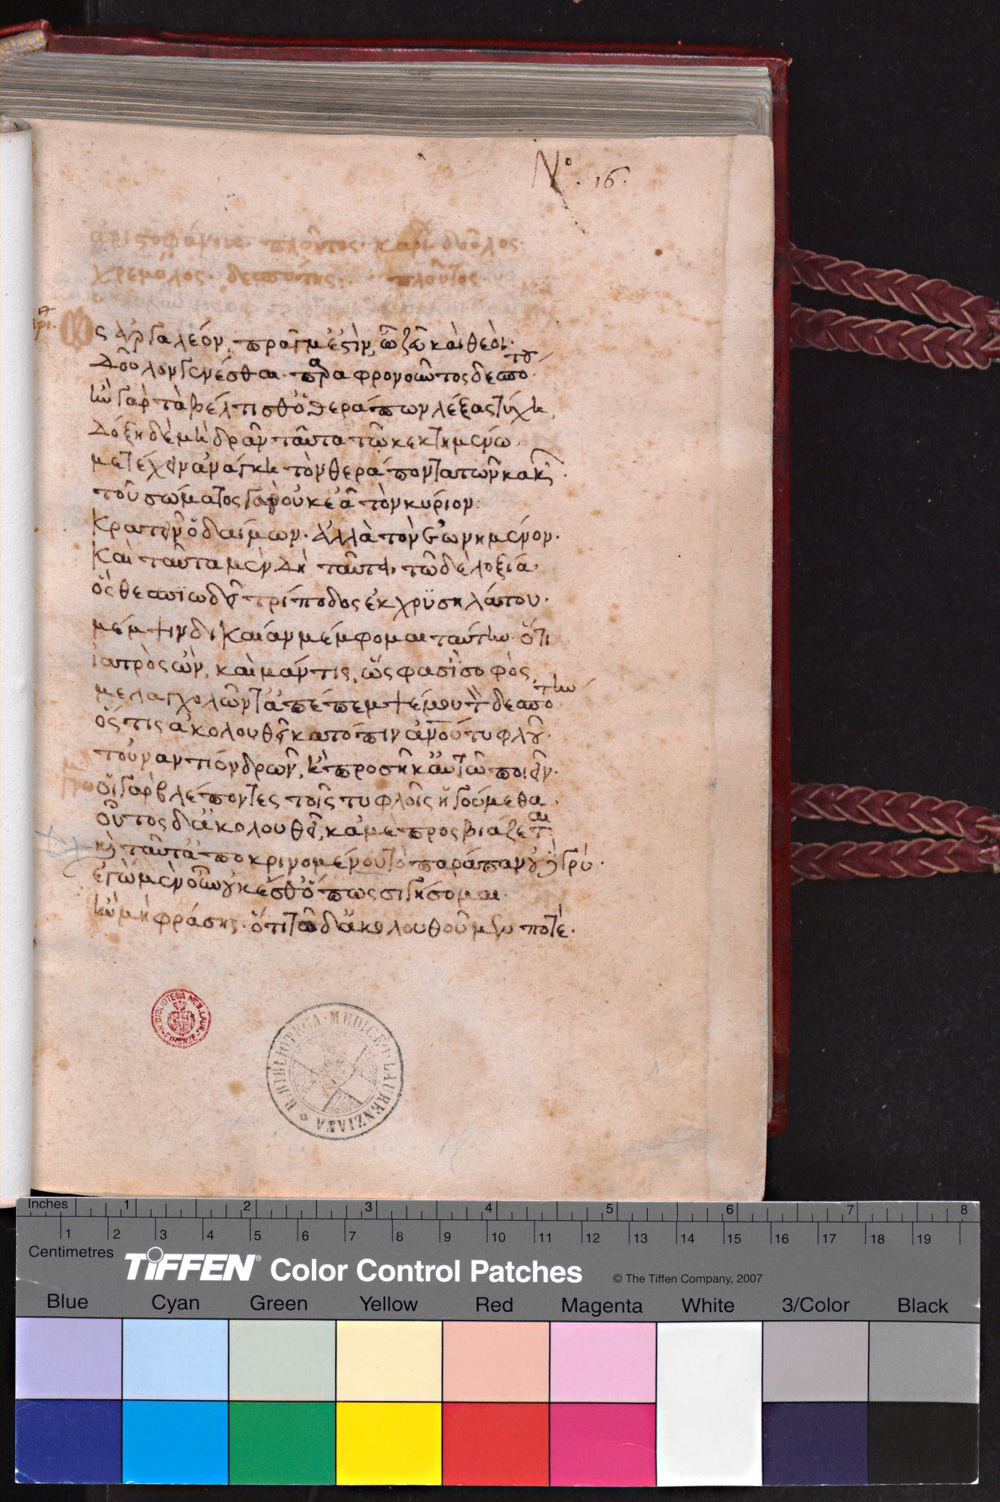 Nº. 16.
ἀριστοφάνους πλοῦτος καρίων δοῦλος
χρεμύλος δεσπότης πλοῦτος
Ὡς ἀργαλέον πρᾶγμ' ἐστὶν, ὦ ζεῦ καὶ θεοὶ·
Δοῦλον γενέσθαι παραφρονοῦντος δεσπότου·
ἢν γὰρ τὰ βέλτισθ' ὁ θεράπων λέξας τύχη,
Δόξη δὲ μὴ δρᾶν ταῦτα τῶ κεκτημένω·
μετέχειν ἀνάγκη τὸν θεράποντα τῶν κακῶν·
τοῦ σώματος γὰρ οὐκ ἐᾶ τὸν κύριον·
Κρατεῖν ὁ δαίμων· ἀλλὰ τὸν ἐωνημένον·
Καὶ ταῦτα μὲν δὴ ταῦτα, τῶ δὲ λοξία·
ὃς θεσπιωδεῖ τρίποδος ἐκ χρυσηλάτου·
μέμψιν δικαίαν μέμφομαι ταύτην· ὅτι
ἰατρὸς ὢν, καὶ μάντις, ὥς φασὶ σοφὸς,
μελαγχολῶντ' ἀπέπεμψέ μου τὸν δεσπότην
ὅς τις ἀκολουθεῖ κατόπιν ἀνοῦ τυφλοῦ·
τοὐναντίον δρῶν, ἢ προσῆκ' αὐτῶ ποιεῖν·
οἱ γὰρ βλέποντες τοῖς τυφλοῖς ἡγούμεθα·
οὗτος δ' ἀκολουθεῖ, κἀμὲ προσβιάζεται
κὶ ταῦτ' ἀποκρινομένου τὸ παράπαν οὐδὲ γρύ·
ἐγὼ μὲν οὖν οὐκ ἔσθ' ὅπως σιγήσομαι·
ἢν μὴ φράσης· ὅτι τῶδ' ἀκολουθοῦμεν ποτὲ·
BIBLIOTECA MED. LAUR. FIRENZE
R. BIBLIOTECA MEDICEO LAURENZIANA
Inches 1 2 3 4 5 6 7 8
1 2 3 4 5 6 7 8 9 10 11 12 13 14 15 16 17 18 19
Centimetres
TIFFEN® Color Control Patches © The Tiffen Company, 2007
Blue Cyan Green Yellow Red Magenta White 3/Color Black